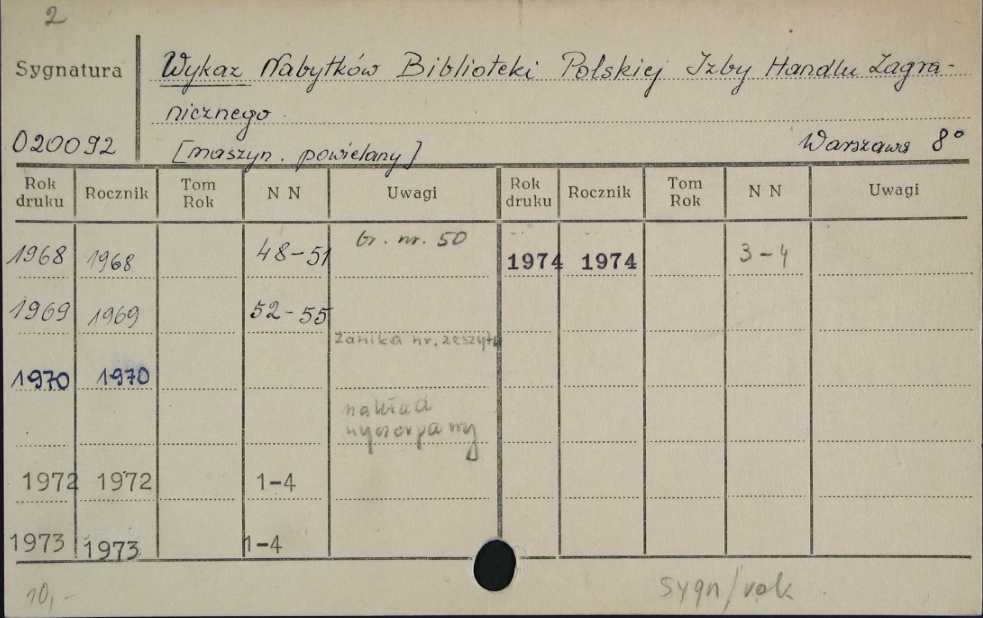 2
Sygnatura
Wykaz Nabytków Biblioteki Polskiej Izby Handlu Zagra-
nicznego
020092
[maszyn. powielany]
Warszawa 8°
Rok druku Rocznik Tom Rok N N Uwagi Rok druku Rocznik Tom Rok N N Uwagi
1968 1968 48-51 br. nr. 50 1974 1974 3-4
1969 1969 52-55
zanika nr. zeszytu
1970 1970
nakład
wyczerpany
1972 1972 1-4
1973 1973 1-4
10,-
sygn/rok